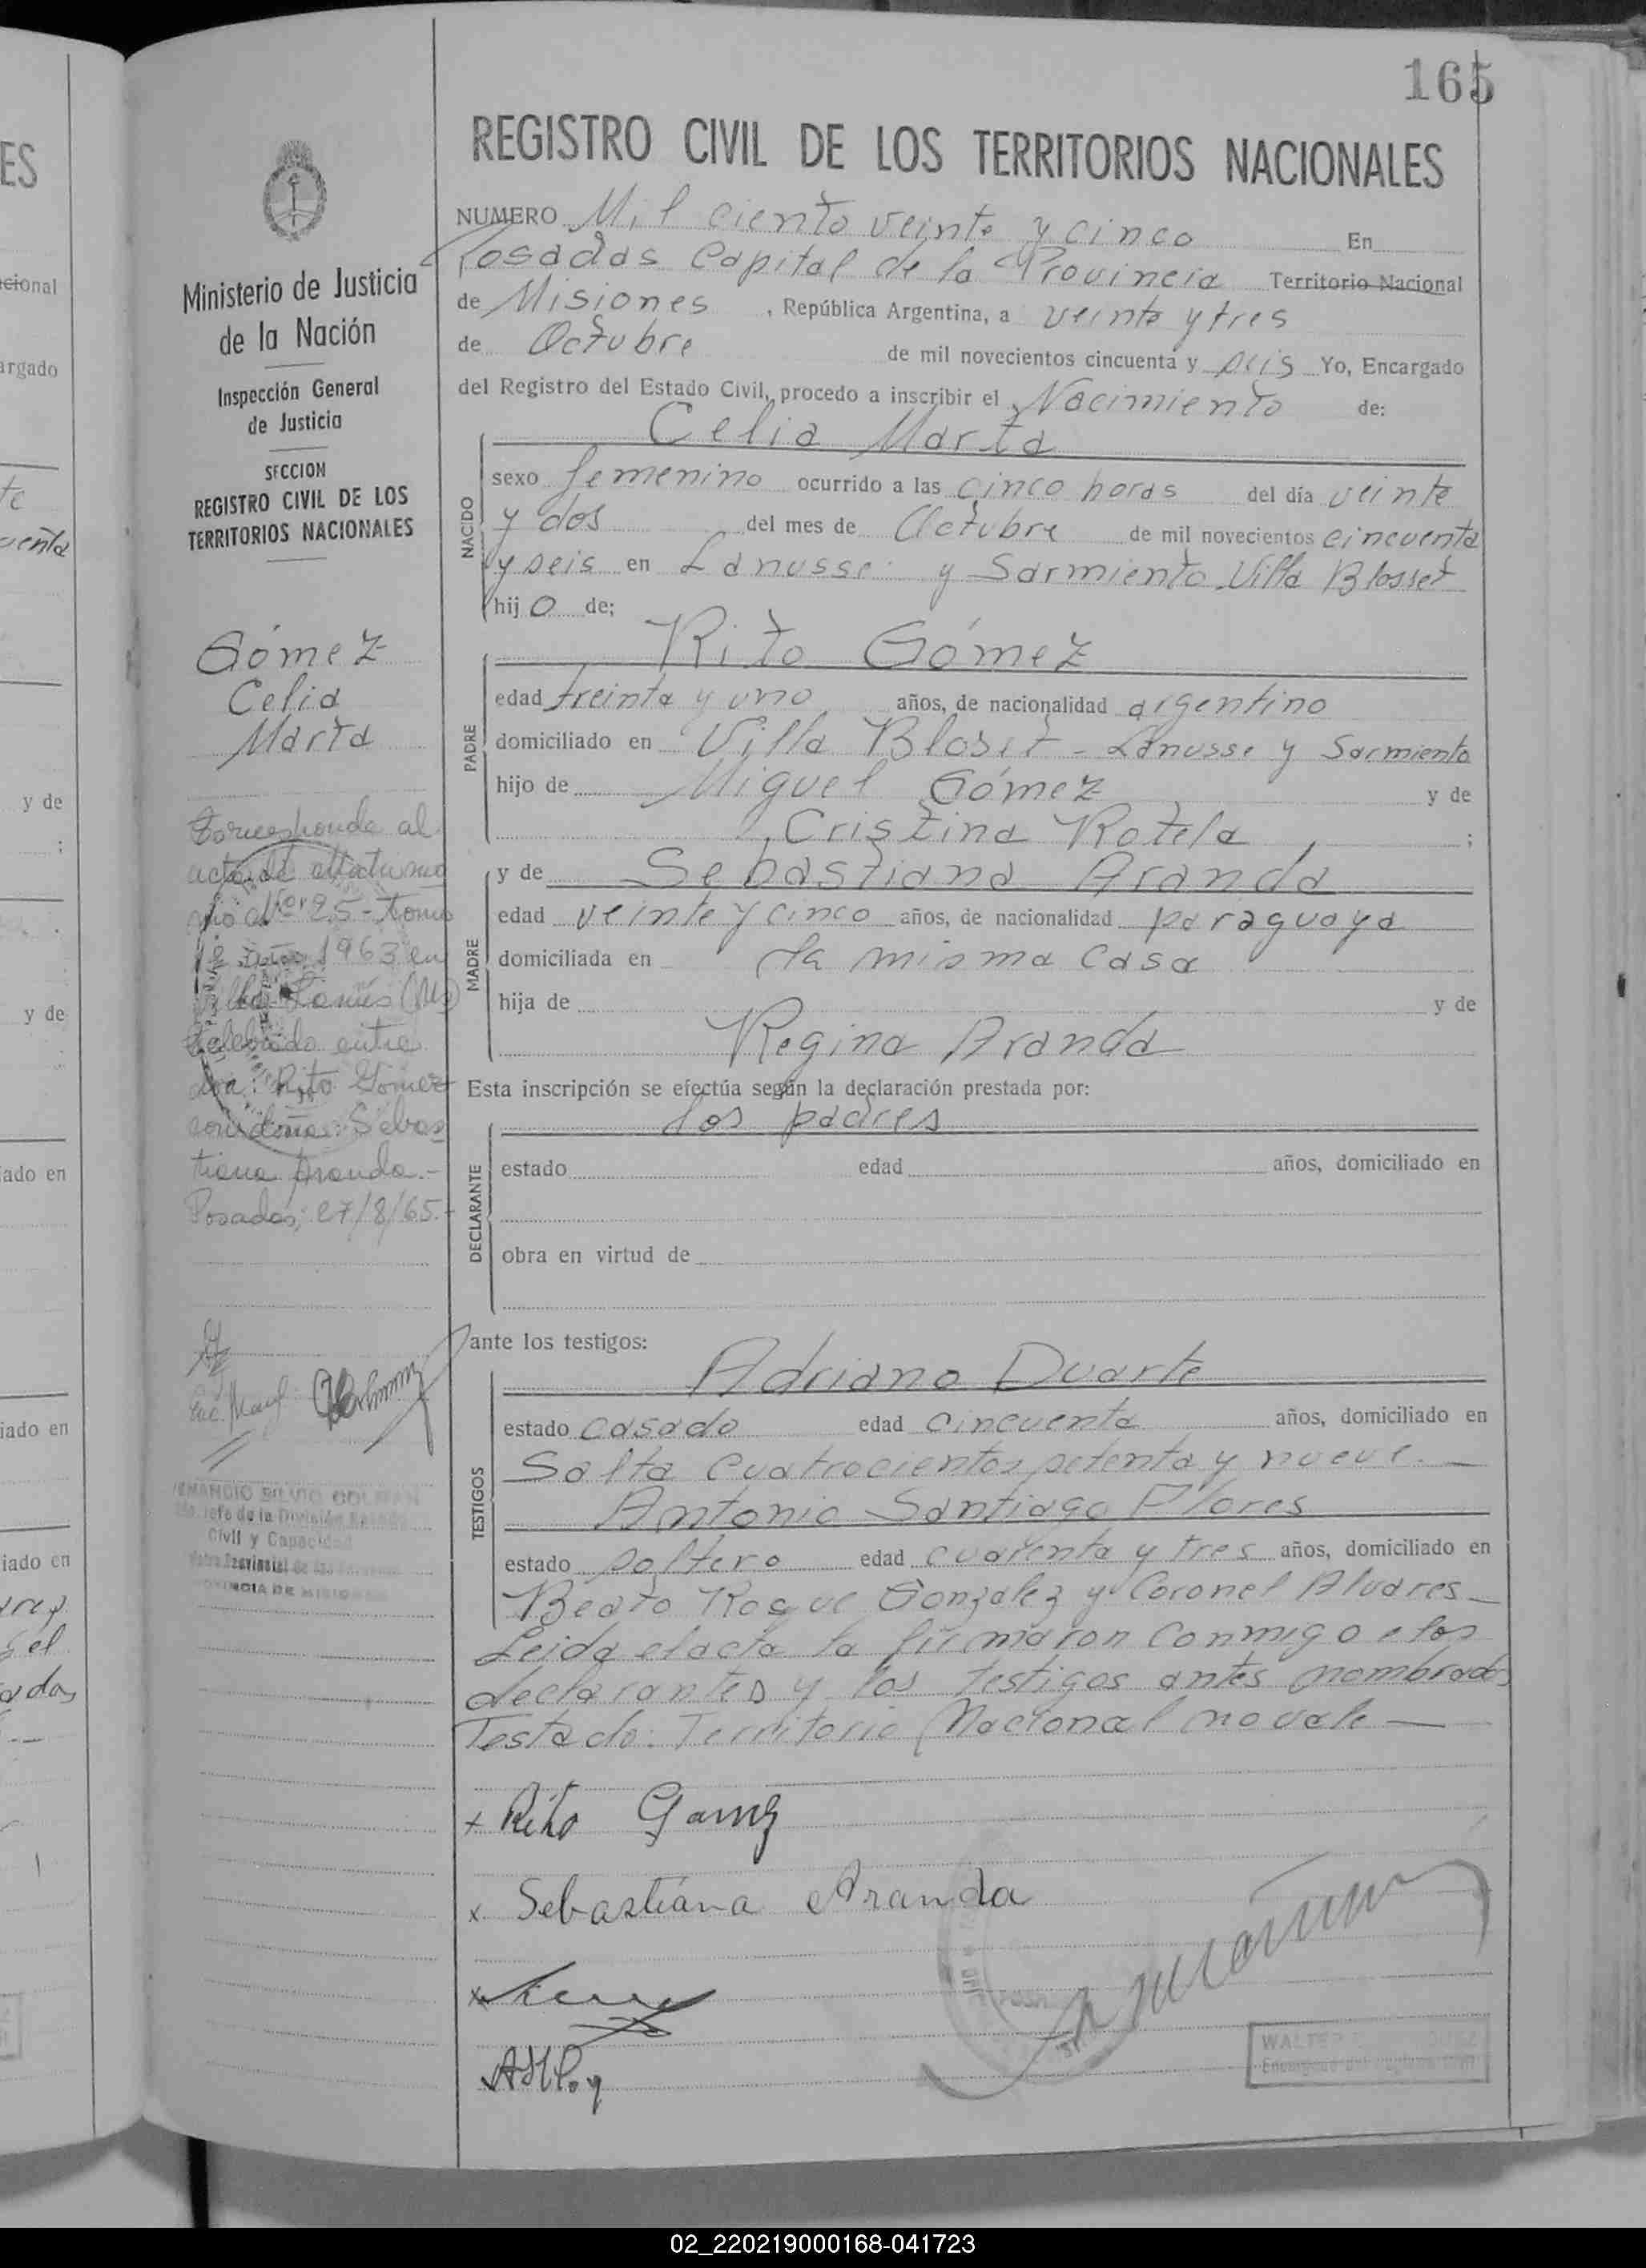 165
REGISTRO CIVIL DE LOS TERRITORIOS NACIONALES
NUMERO Mil ciento veinte y cinco En
Posadas Capital de la Provincia Territorio Nacional
de Misiones, República Argentina, a veinte y tres
de Octubre de mil novecientos cincuenta y seis Yo, Encargado
del Registro del Estado Civil, procedo a inscribir el Nacimiento de:
Celia Marta
NACIDO
sexo femenino ocurrido a las cinco horas del día veinte
y dos del mes de Octubre de mil novecientos cincuenta
y seis en Lanusse y Sarmiento Villa Blosset
hijo de:
Rito Gómez
PADRE
edad treinta y uno años, de nacionalidad argentino
domiciliado en Villa Bloset - Lanusse y Sarmiento
hijo de Miguel Gómez y de
Cristina Rotela ;
y de Sebastiana Aranda
MADRE
edad veinte y cinco años, de nacionalidad paraguaya
domiciliada en la misma casa
hija de y de
Regina Aranda
Esta inscripción se efectúa según la declaración prestada por:
los padres
DECLARANTE
estado edad años, domiciliado en
obra en virtud de
ante los testigos:
Adriano Duarte
TESTIGOS
estado casado edad cincuenta años, domiciliado en
Salta cuatrocientos setenta y nueve.
Antonio Santiago Flores
estado soltero edad cuarenta y tres años, domiciliado en
Beato Roque Gonzalez y Coronel Alvares
Leida el acta la firmaron conmigo los
declarantes y los testigos antes nombrados
Testado: Territorio Nacional no vale
x Rito Gomez
x Sebastiana Aranda
WALTER
Ministerio de Justicia
de la Nación
Inspección General
de Justicia
SECCION
REGISTRO CIVIL DE LOS
TERRITORIOS NACIONALES
Gómez
Celia
Marta
Corresponde al
acta de matrimo
nio Nº 25 - tomo
año 1963 en
Villa Lanús (Ms)
Celebrado entre
don: Rito Gómez
con doña: Sebas
tiana Aranda.-
Posadas, 27/8/65.-
Jefe de la División
Civil y Capacidad
Provincial de
PROVINCIA DE MISIONES
02_220219000168-041723